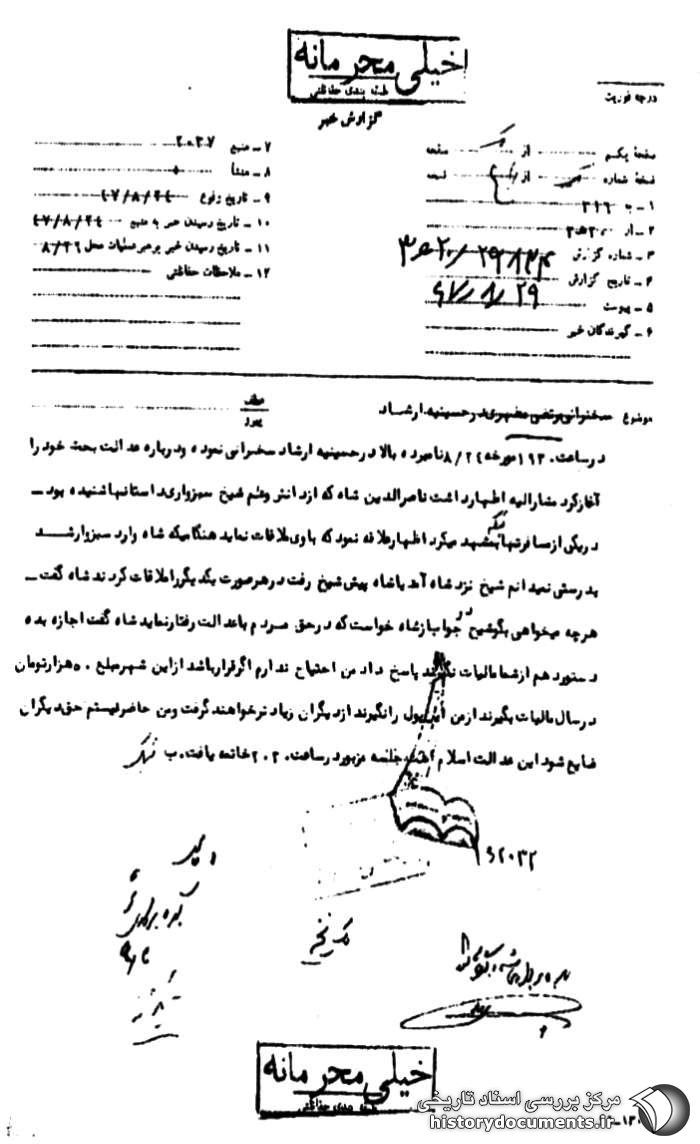 خیلی محرمانه
طبقه بندی حفاظتی
گزارش خبر
درجه فوریت
صفحهٔ یکم از صفحه
نسخهٔ شماره از نسخه
۱ - به ۳۱۶
۲ - از
۳ - شماره گزارش
۴ - تاریخ گزارش ۴۷/۸/۲۹
۵ - پیوست
۶ - گیرندگان خبر
۷ - منبع ۲۰۳۷
۸ - منشأ
۹ - تاریخ وقوع ۴۷/۸/۲۴
۱۰ - تاریخ رسیدن خبر به منبع ۴۷/۸/۲۴
۱۱ - تاریخ رسیدن خبر برهبر عملیات محل ۸/۲۶
۱۲ - ملاحظات حفاظتی
موضوع سخنرانی مرتضی مطهری در حسینیه ارشاد
عطف
پیرو
در ساعت ۱۹۳۰ مورخه ۸/۲۴ نامبرده بالا در حسینیه ارشاد سخنرانی نموده و درباره عدالت بحث خود را
آغاز کرد مشارالیه اظهار داشت ناصرالدین شاه که از دانش و علم شیخ سبزواری داستانها شنیده بود -
در یکی از مسافرتها بمشهد میکرد اظهار علاقه نمود که با وی ملاقات نماید هنگامیکه شاه وارد سبزوار شد
بدرستی نمیدانم شیخ نزد شاه آمد یا شاه پیش شیخ رفت در هر صورت یکدیگر را ملاقات کردند شاه گفت -
هر چه میخواهی بگو شیخ در جواب از شاه خواست که در حق مردم با عدالت رفتار نماید شاه گفت اجازه بده
دستور دهم از شما مالیات نگیرند پاسخ داد من احتیاج ندارم اگر قرار باشد از این شهر مبلغ ۵۰ هزار تومان
در سال مالیات بگیرند از من این پول را نگیرند از دیگران زیادتر خواهند گرفت و من حاضر نیستم حق دیگران
ضایع شود این عدالت اسلام است جلسه مزبور در ساعت ۲۰۲۰ خاتمه یافت. ب
۲۰۳۲
خیلی محرمانه
طبقه بندی حفاظتی
مرکز بررسی اسناد تاریخی
historydocuments.ir